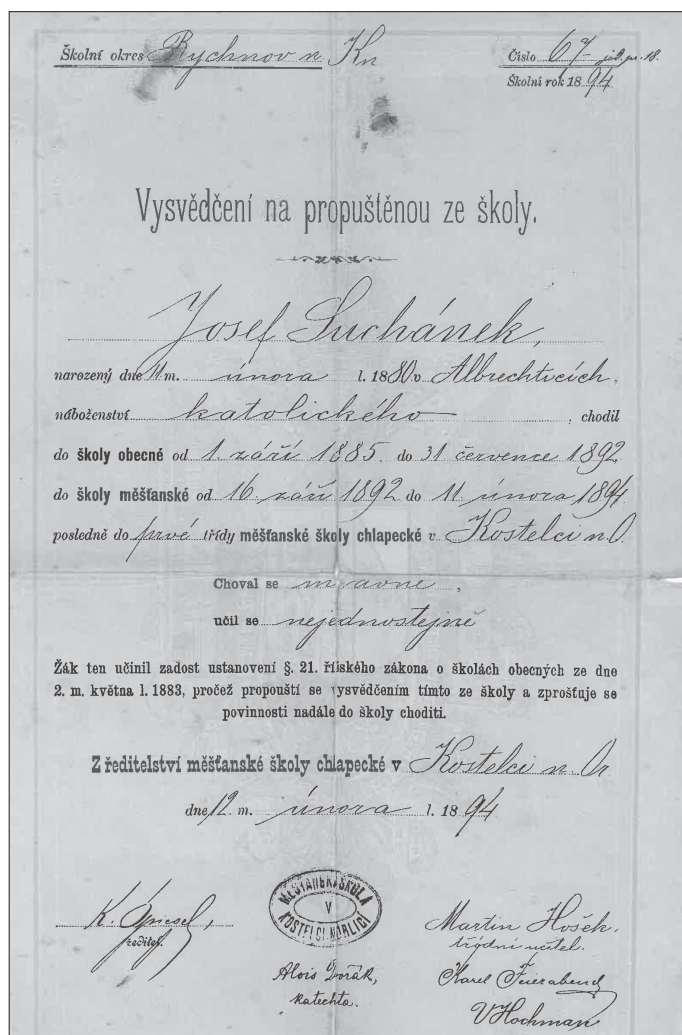 Školní okres Rychnov n Kn
Číslo 67
Školní rok 1894
Vysvědčení na propuštěnou ze školy.
Josef Suchánek,
narozený dne 11 m. února l. 1880 v Albrechticích,
náboženství katolického, chodil
do školy obecné od 1. září 1885. do 31 července 1892
do školy měšťanské od 16. září 1892 do 11 února 1894
posledně do prvé třídy měšťanské školy chlapecké v Kostelci n. O.
Choval se mravně,
učil se nejednostejně
Žák ten učinil zadost ustanovení §. 21. říšského zákona o školách obecných ze dne
2. m. května l. 1883, pročež propouští se vysvědčením tímto ze školy a zprošťuje se
povinnosti nadále do školy choditi.
Z ředitelství měšťanské školy chlapecké v Kostelci n. Or
dne 12. m. února l. 1894
MĚŠŤANSKÁ ŠKOLA
V
KOSTELCI N ORLICÍ
K.
ředitel.
Alois Dořák,
katecheta.
Martin Hošek,
třídní učitel.
Karel Feierabend
V Hochman